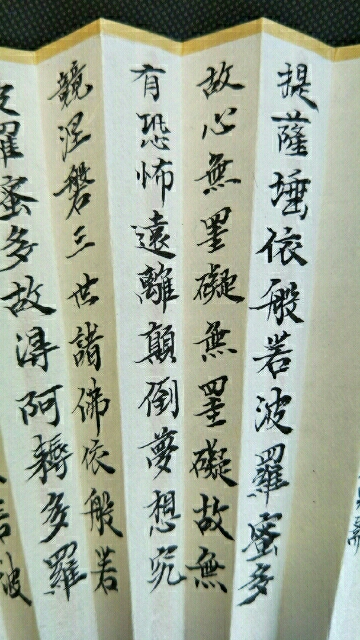 提薩埵依般若波羅蜜多
故心無罣礙無罣礙故無
有恐怖遠離顛倒夢想究
競涅磐三世諸佛依般若
羅蜜多故得阿耨多羅
波